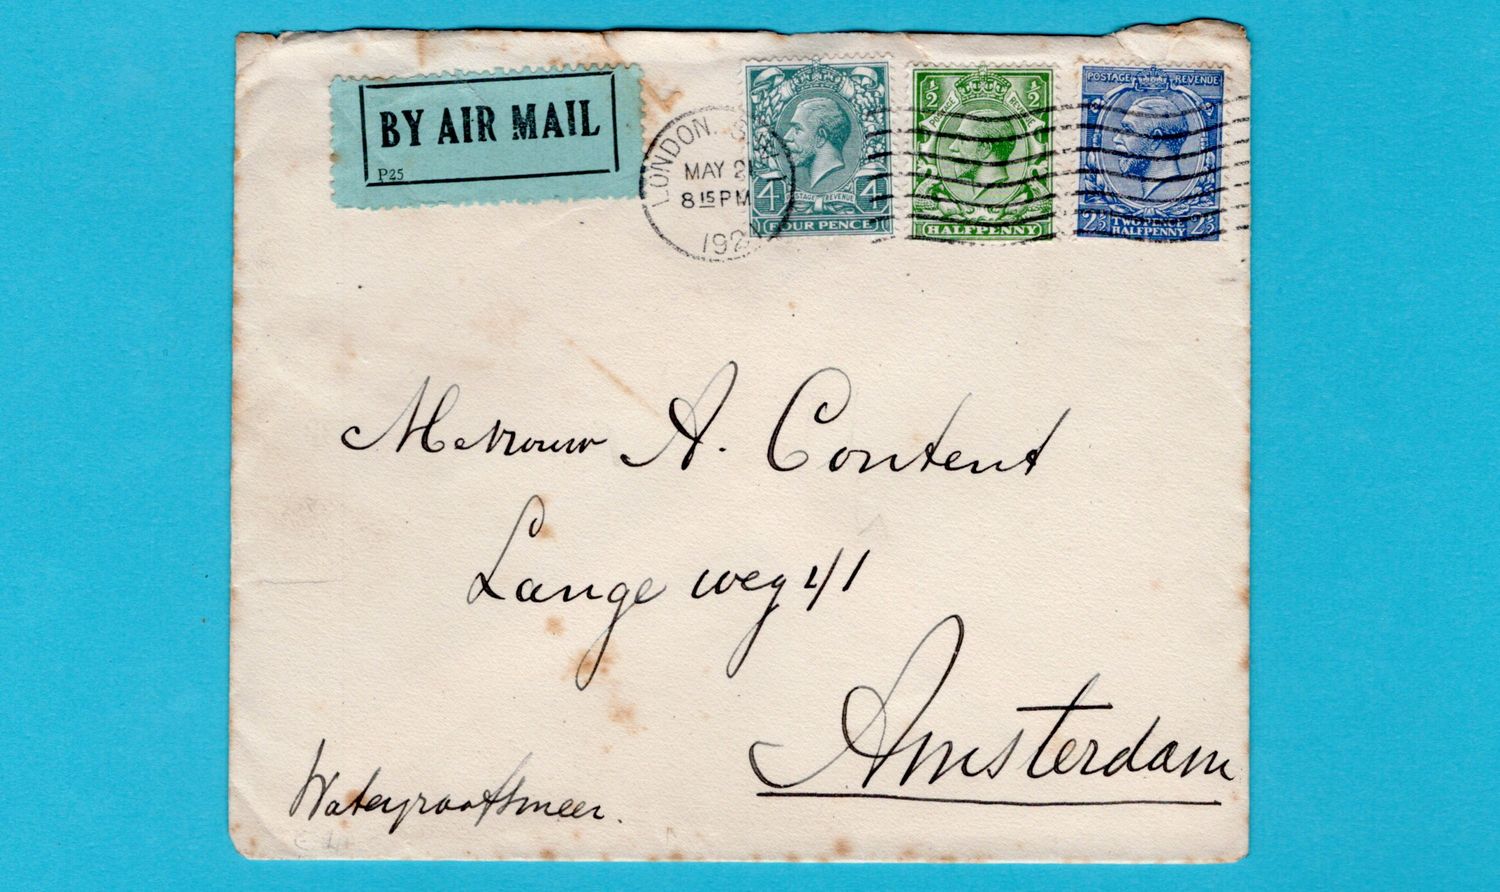 BY AIR MAIL
P25
LONDON. S
MAY 2
8 15 PM
192
4 POSTAGE REVENUE 4
FOUR PENCE
½ ½
POSTAGE REVENUE
HALFPENNY
POSTAGE REVENUE
2½ TWO PENCE 2½
HALFPENNY
A. Content
Lange weg 41
Amsterdam
Watergraafsmeer.